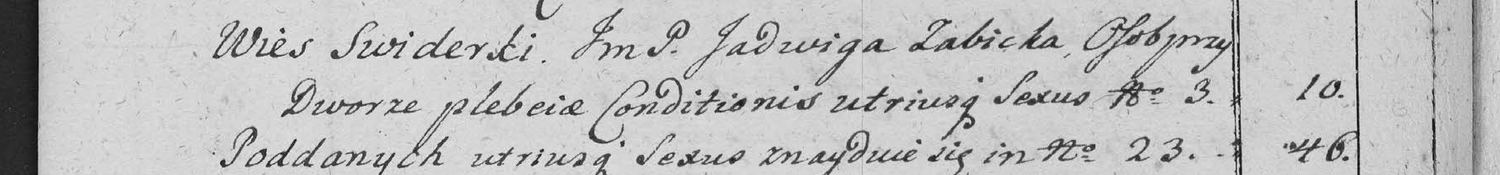 Wiès Swiderski. Jm P. Jadwiga Zabicka, Osob przy
Dworze plebeiæ Conditionis utriusq Sexus No 3. 10.
Poddanych utriusq Sexus znayduie się in No 23. 46.